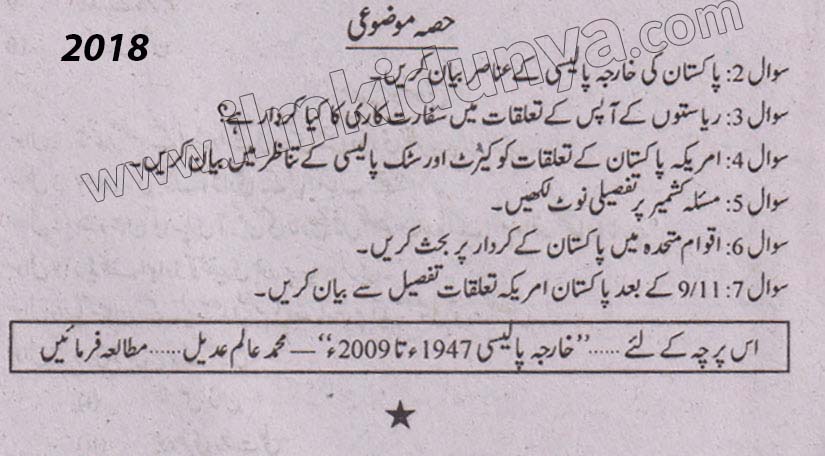 2018
حصہ موضوعی
سوال 2: پاکستان کی خارجہ پالیسی کے عناصر بیان کریں۔
سوال 3: ریاستوں کے آپس کے تعلقات میں سفارت کاری کا کیا کردار ہے؟
سوال 4: امریکہ پاکستان کے تعلقات کو کیرٹ اور سٹک پالیسی کے تناظر میں بیان کریں۔
سوال 5: مسئلہ کشمیر پر تفصیلی نوٹ لکھیں۔
سوال 6: اقوام متحدہ میں پاکستان کے کردار پر بحث کریں۔
سوال 7: 9/11 کے بعد پاکستان امریکہ تعلقات تفصیل سے بیان کریں۔
اس پرچہ کے لئے ...... "خارجہ پالیسی 1947ء تا 2009ء" — محمد عالم عدیل ...... مطالعہ فرمائیں
www.ilmkidunya.com